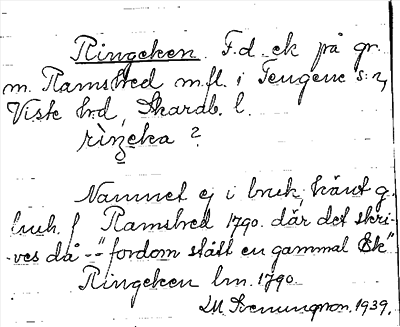 Ringeken. F.d. ek på gr.
m. Ramshed m.fl. i Tengene s:n,
Viste h:d, Skarab. l.
rìŋeka ?
Namnet ej i bruk, känt g.
lmk. f Ramshed 1790. där det skri-
-ves då -- "fordom stått en gammal Ek"
Ringeken lm. 1790.
M Svenungson. 1939.